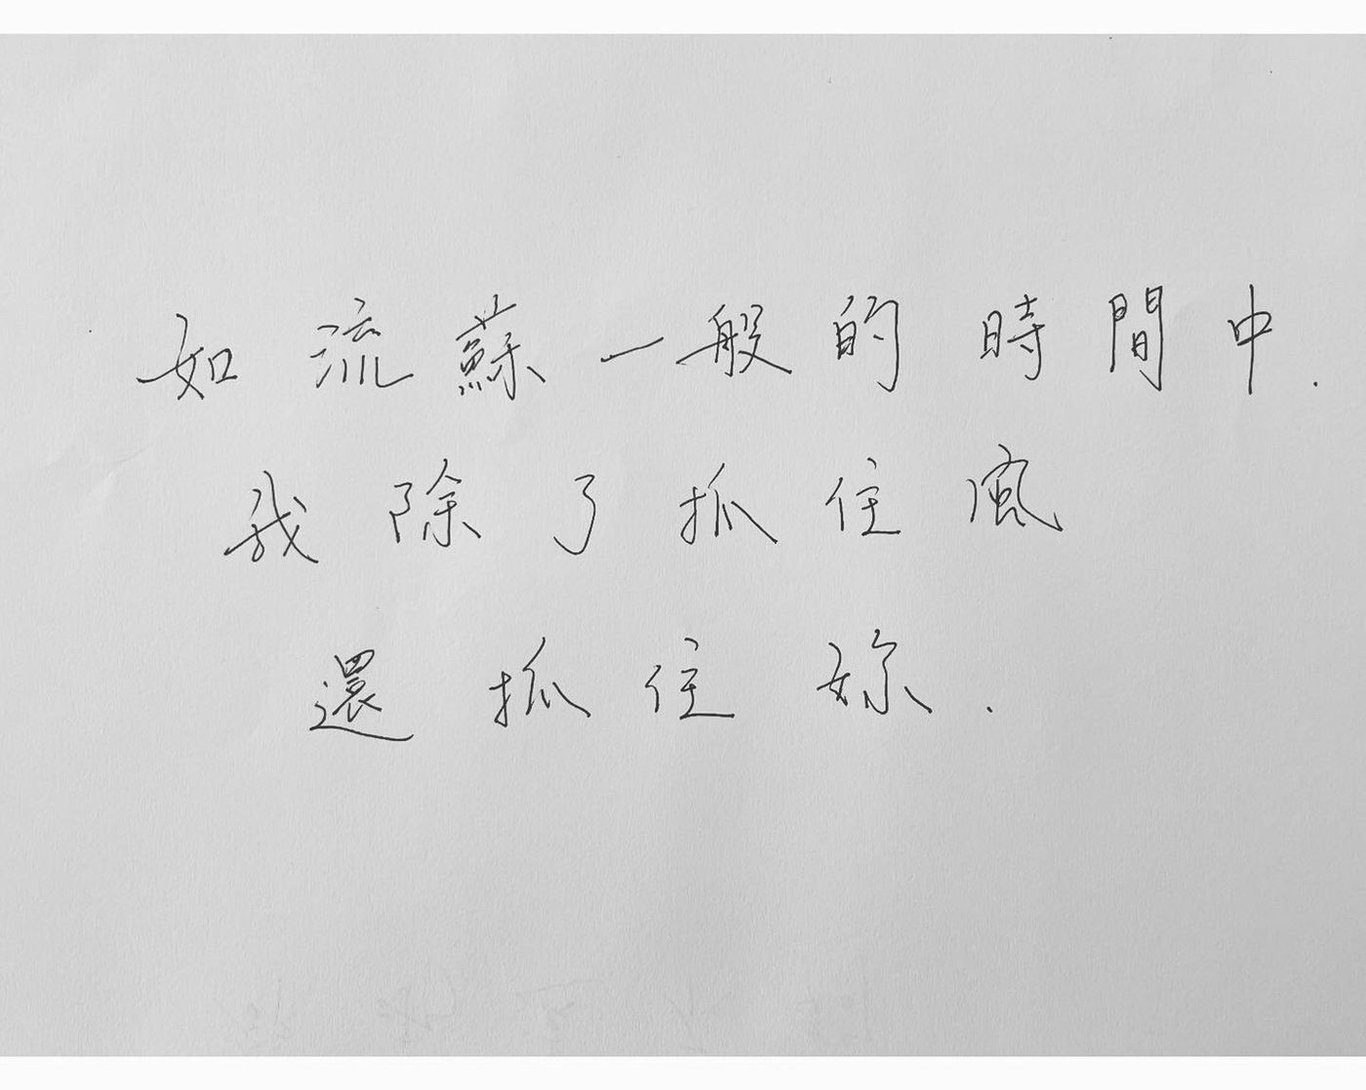 如流蘇一般的時間中.
我除了抓住風
還抓住妳.